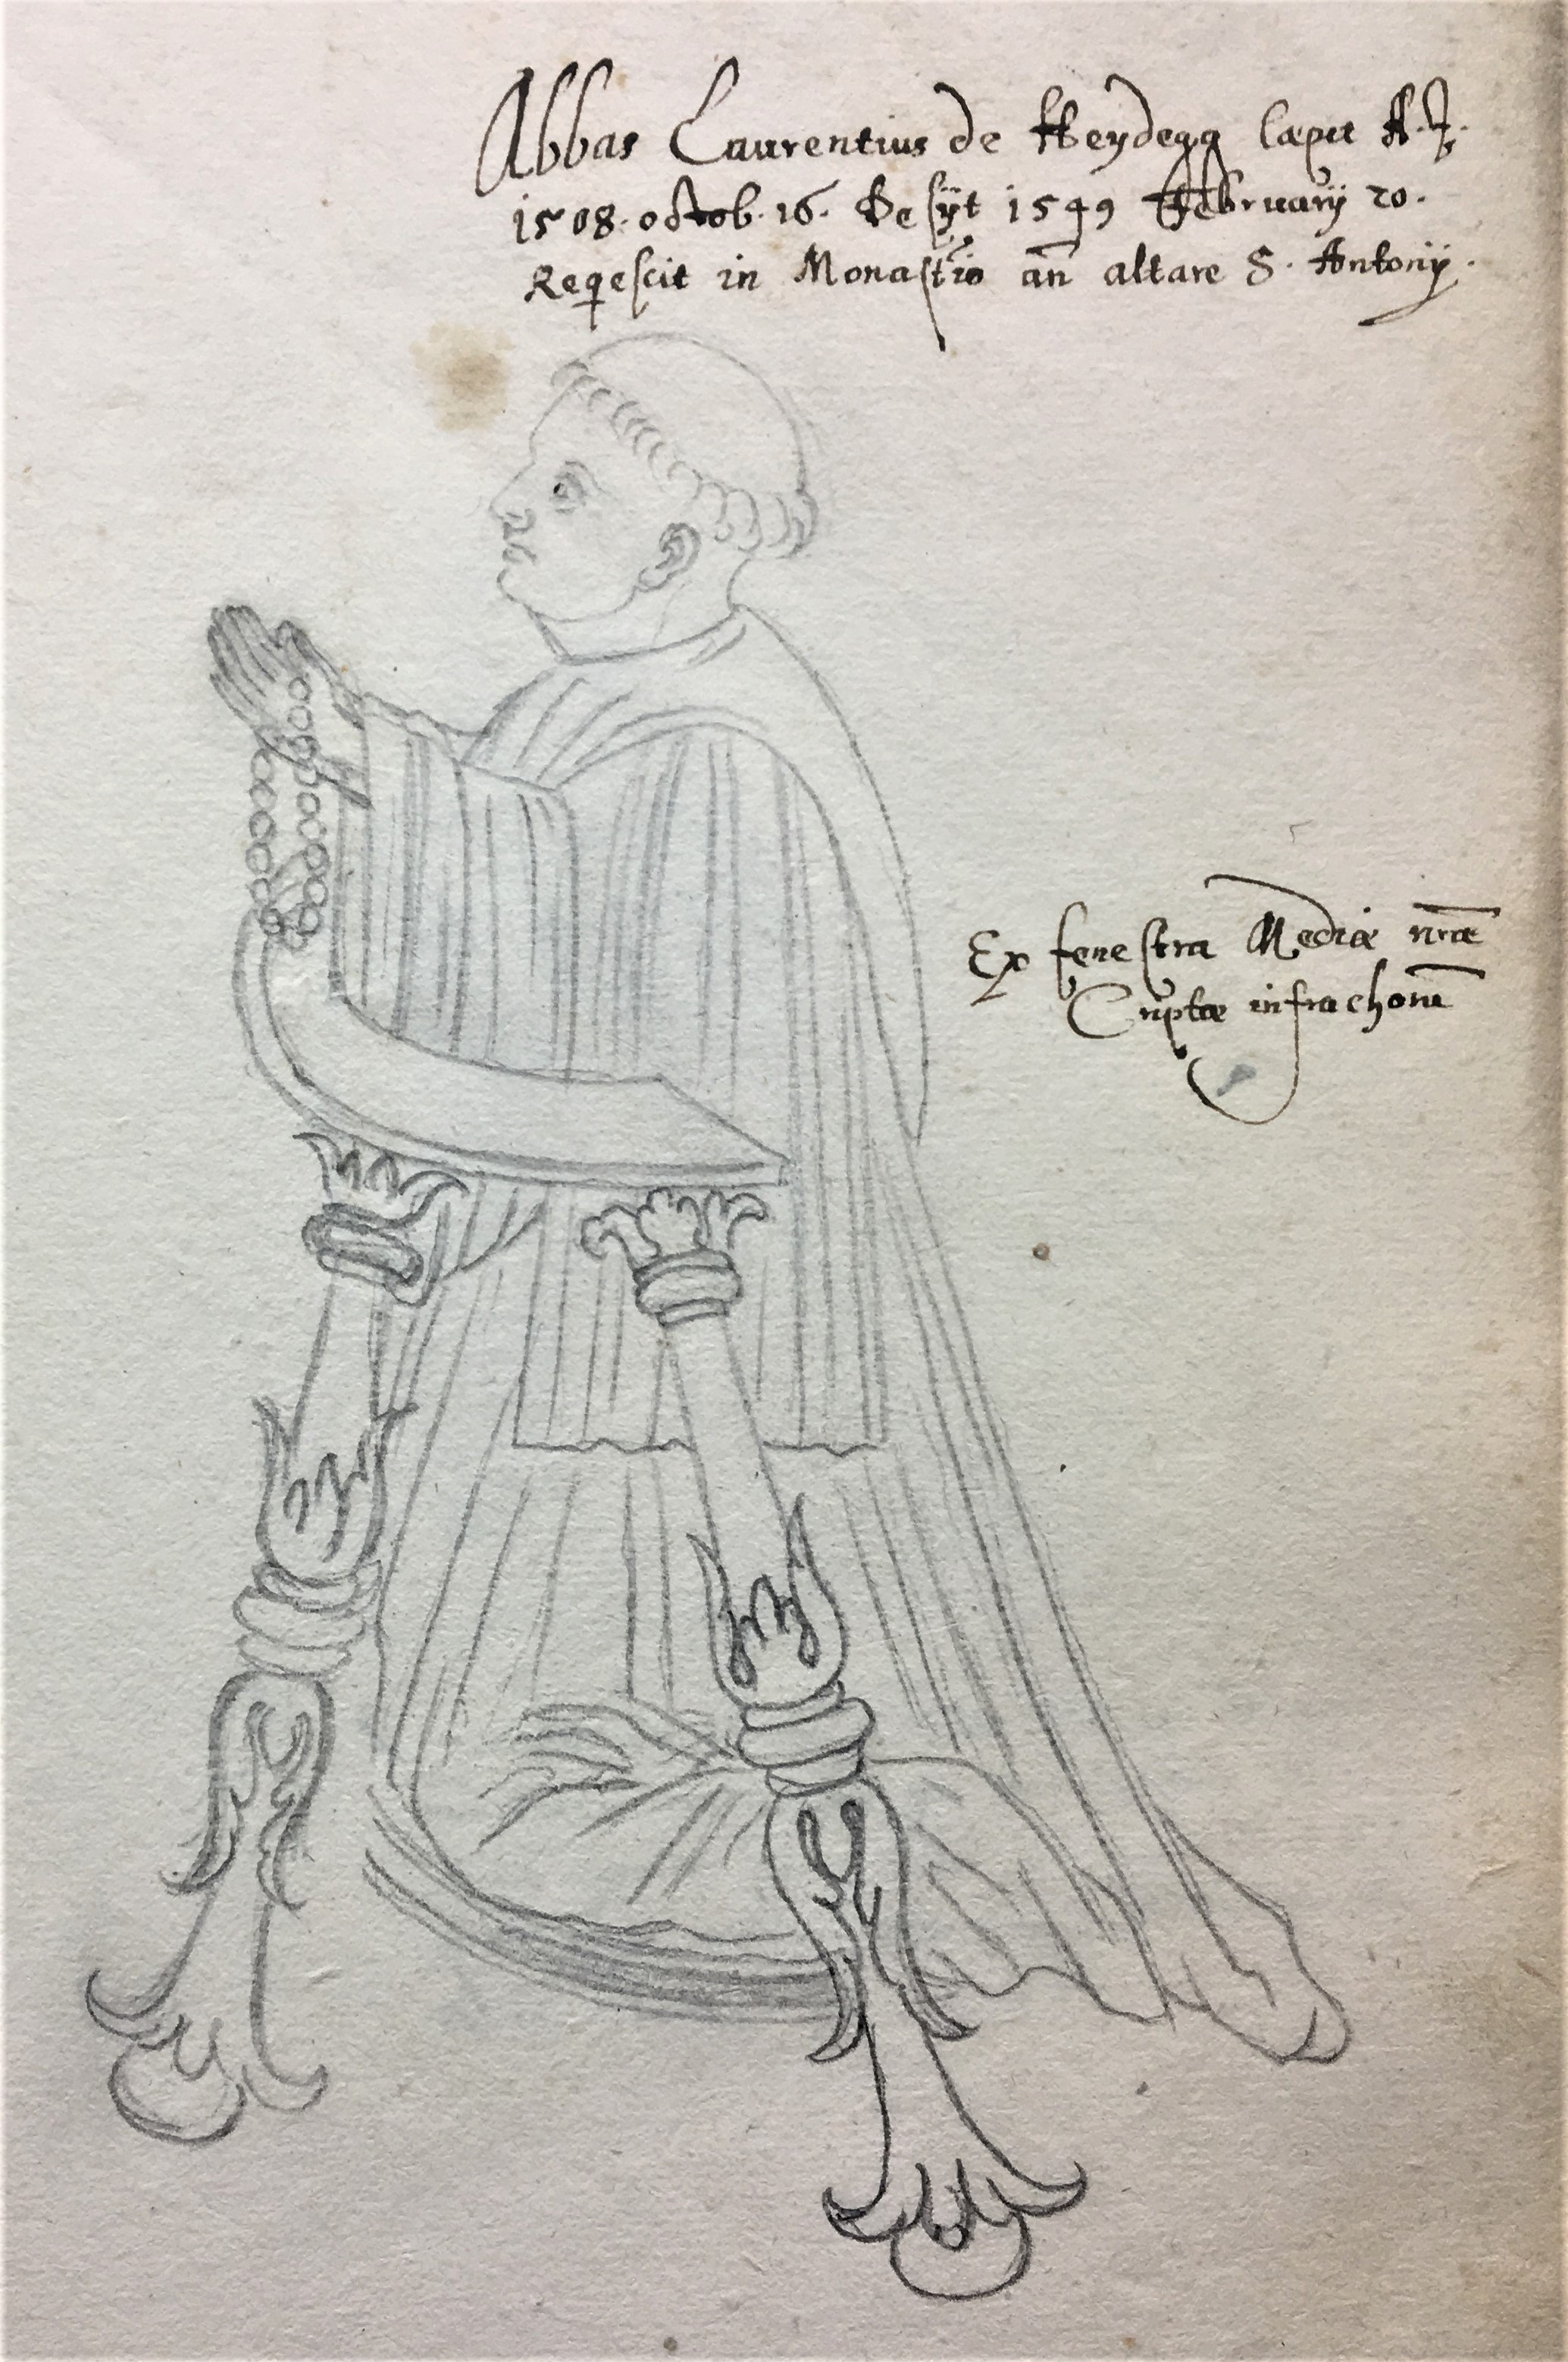 Abbas Laurentius de Heydegg Cæpit A. I.
1508. octob. 16. Desÿt 1549 Februarÿ 20.
Reqescit in Monastrio añ altare S. Antonÿ.
Ex fenestra Mediæ nr̄æ
Cryptæ infra chorū